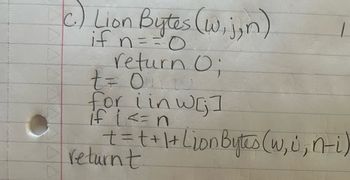 c.) Lion Bytes (w,j,n)
if n==0
return 0;
t= 0
for i in w[j]
if i <= n
t=t+1+LionBytes(w,i,n-i)
return t